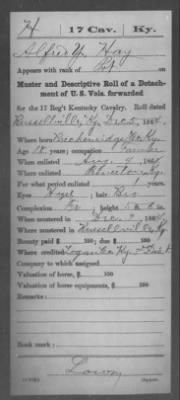 H 17 Cav. Ky.
Alfred Y. Hay
Appears with rank of Pvt
Muster and Descriptive Roll of a Detachment of U. S. Vols. forwarded
for the 17 Reg't Kentucky Cavalry. Roll dated
Russellville Ky Dec 1864.
Where born Breckenridge Co Ky
Age 18 years; occupation Farmer
When enlisted Aug 4 1864
Where enlisted
For what period enlisted years.
Eyes Hazel ; hair
Complexion ; height 5 ft. in.
When mustered in Dec. 1864
Where mustered in Russellville Ky
Bounty paid $ 100; due $ 100
Where credited Logan Co Ky
Company to which assigned
Valuation of horse, $ 100
Valuation of horse equipments, $ 100
Remarks:
Book mark:
Lowry
Copyist.